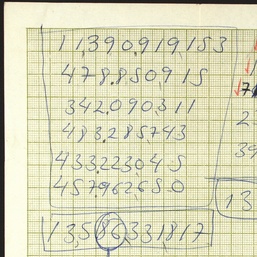 11,390,919,153
478.850915
342.090.311
483.285743
433223045
457962650
13,586,331,817
13